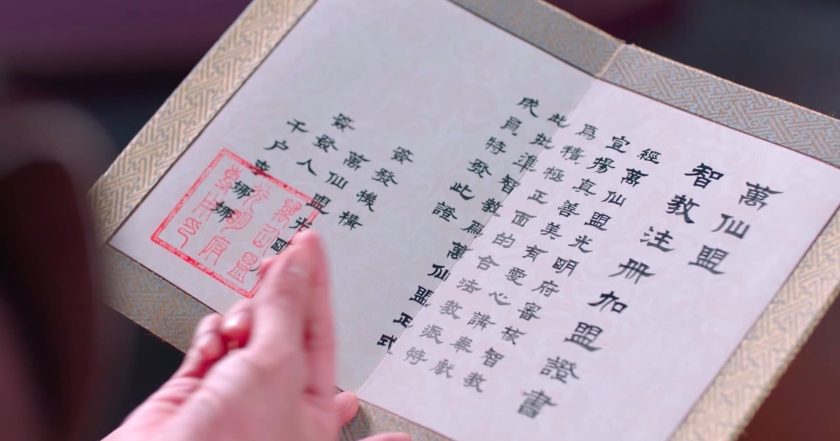 萬仙盟
智教注册加盟證書
經萬仙盟光明府審核智教
宣揚真善美有愛心講奉獻
爲積極正面的合法教派特
此批準智教爲萬仙盟正式
成員特發此證
簽發機構
萬仙盟光明
簽發人
千户李娜娜